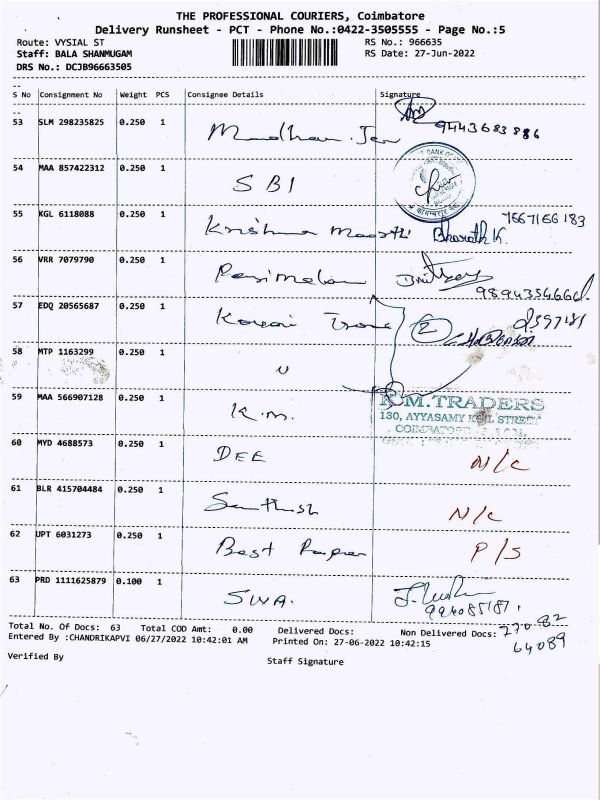 THE PROFESSIONAL COURIERS, Coimbatore
Delivery Runsheet - PCT - Phone No.:0422-3505555 - Page No.:5
Route: VYSIAL ST RS No.: 966635
Staff: BALA SHANMUGAM RS Date: 27-Jun-2022
DRS No.: DCJB96663505
S No Consignment No Weight PCS Consignee Details Signature
53 SLM 298235825 0.250 1 9443683886
54 MAA 857422312 0.250 1 SBI
55 KGL 6118088 0.250 1 Krishna Moorthi Bharath K. 7667166183
56 VRR 7079790 0.250 1
57 EDQ 20565687 0.250 1 Kovai 2
58 MTP 1163299 0.250 1 "
59 MAA 566907128 0.250 1 K.M. K.M.TRADERS
130, AYYASAMY KOIL STREET
COIMBATORE
60 MYD 4688573 0.250 1 DEE N/C
61 BLR 415704484 0.250 1 Santhosh N/C
62 UPT 6031273 0.250 1 Best Paper P/S
63 PRD 1111625879 0.100 1 SWA.
Total No. Of Docs: 63 Total COD Amt: 0.00 Delivered Docs: Non Delivered Docs:
64089
Entered By :CHANDRIKAPVI 06/27/2022 10:42:01 AM Printed On: 27-06-2022 10:42:15
Verified By Staff Signature